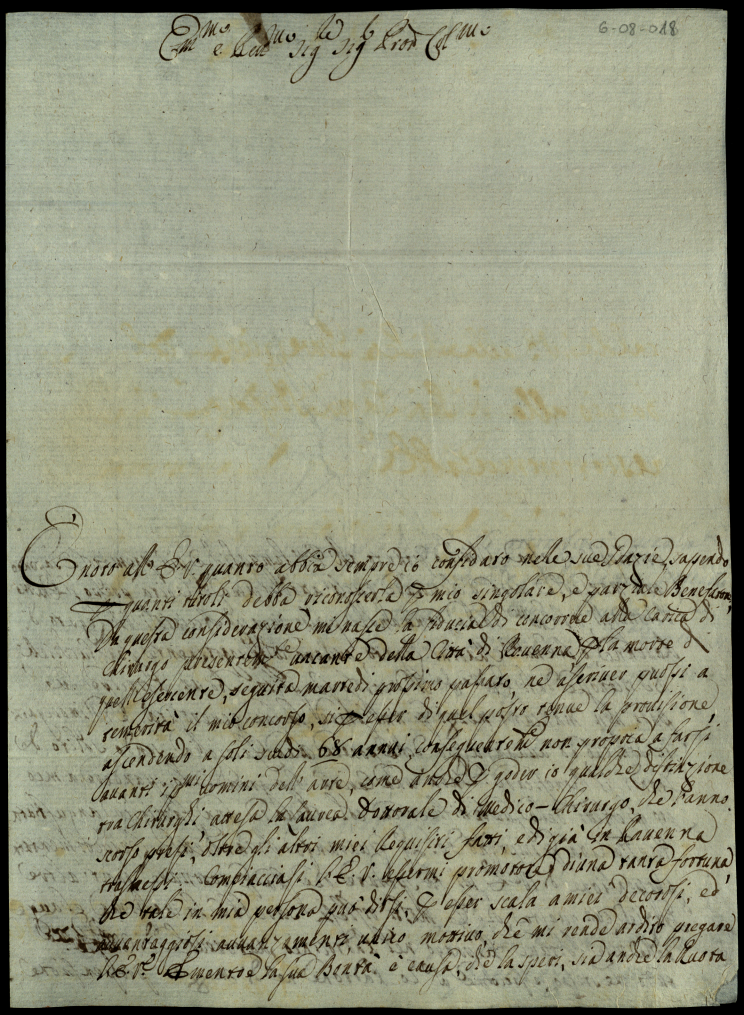 6-08-018
Em.mo e Rev.mo Sig.re Sig.r Pron Col.mo
È noto all' E. V. quanto abbia sempre io confidato nelle sue Grazie, sapendo
quanti titoli debba riconoscerla mio singolare, e parziale Benefattore,
Da questa considerazione mi nasce la fiducia di concorrere alla carica di
Chirurgo presentem.te vacante della Città di Ravenna la morte di
quell' esercente, seguita martedì prossimo passato, ne ascriver puossi a
temerità il mio concorso, si esser di quel posto tenue la provisione,
ascendendo a soli scudi 68 annui, conseguentem.te non propria a farsi
avanti uomini dell' arte, come anche goder io qualche distinzione
tra chirurghi attesa la laurea Dottorale di Medico-Chirurgo, che l'anno
scorso presi, oltre gli altri miei requisiti fatti, e di già in Ravenna
trasmessi. Compiacciasi l' E. V. essermi promotrice di una tanta fortuna
che tale in mia persona può dirsi, esser scala a miei decorosi, ed
avantaggiosi avanzamenti, unico motivo, che mi rende ardito pregare
l' E. V. mentre la sua Bontà è causa, che la speri, sia anche la Ruota